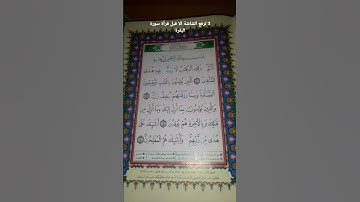 لا ترفع الشاشة الا قبل قرأة سورة
البقرة
بِسْمِ ٱللَّهِ ٱلرَّحْمَٰنِ ٱلرَّحِيمِ
الٓمٓ ذَٰلِكَ ٱلْكِتَٰبُ لَا رَيْبَ فِيهِ هُدًى
لِّلْمُتَّقِينَ ٱلَّذِينَ يُؤْمِنُونَ بِٱلْغَيْبِ وَيُقِيمُونَ
ٱلصَّلَوٰةَ وَمِمَّا رَزَقْنَٰهُمْ يُنفِقُونَ
وَٱلَّذِينَ يُؤْمِنُونَ بِمَآ أُنزِلَ إِلَيْكَ وَمَآ أُنزِلَ مِن
قَبْلِكَ وَبِٱلْءَاخِرَةِ هُمْ يُوقِنُونَ أُو۟لَٰٓئِكَ عَلَىٰ
هُدًى مِّن رَّبِّهِمْ وَأُو۟لَٰٓئِكَ هُمُ ٱلْمُفْلِحُونَ